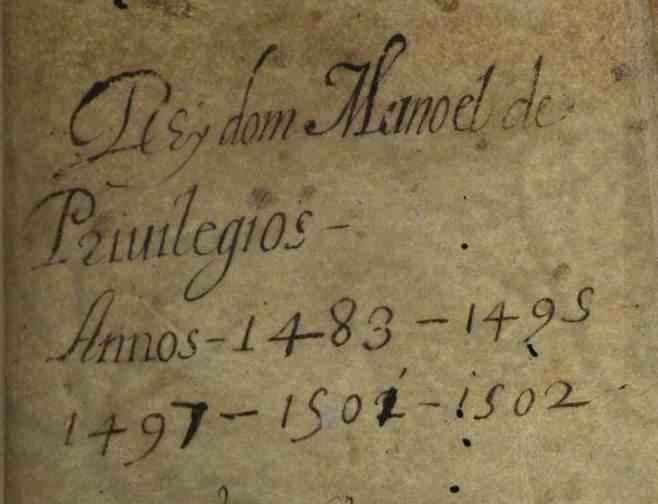 Rey dom Manoel de
Priuilegios -
Annos - 1483 - 1495 -
1497 - 1501 - 1502 -